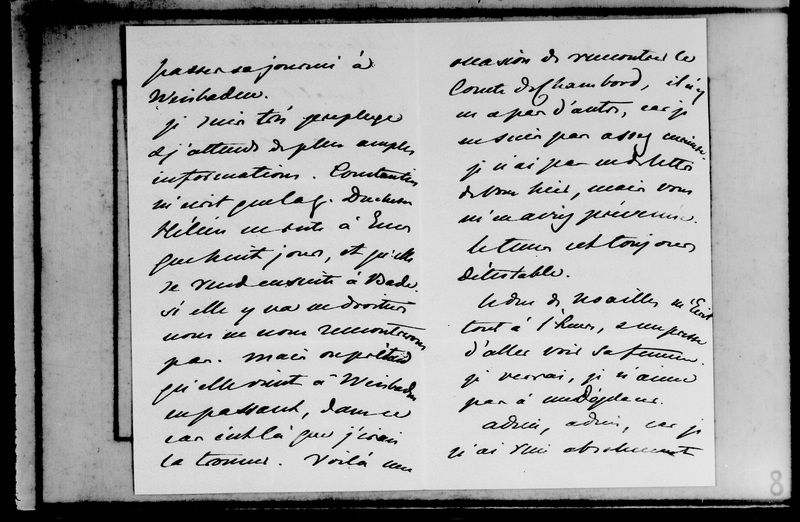 passer sa journée à
Wiesbaden.
je suis très perplexe
& j'attends de plus amples
informations. Constantin
m'écrit que la g. Duchesse
Hélène ne reste à Ems
que huit jours, et qu'elle
se rend ensuite à Bade.
si elle y va en droiture
nous ne nous rencontrerons
pas. mais on prétend
qu'elle vient à Wiesbaden
en passant, dans ce
cas c'est là que j'irais
la trouver. Voilà une
occasion de rencontrer le
Comte de Chambord, il n'y
en a pas d'autre, car je
ne suis pas assez
je n'ai pas eu de lettre
de vous hier, mais vous
m'en aviez prévenue.
le tems est toujours
détestable.
le duc de Noailles m'écrit
tout à l'heure, & me presse
d'aller voir sa femme.
je verrai, je n'aime
pas à me déplacer.
adieu, adieu, car je
n'ai rien absolument
8